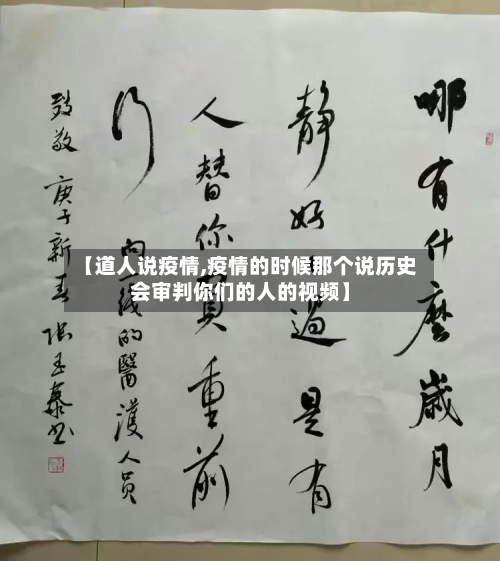 哪有什麼歲月
静好
過是有
人替你負重前
行
向一线的醫護人員
致敬 庚子新春 張玉泰书
【道人说疫情,疫情的时候那个说历史
会审判你们的人的视频】